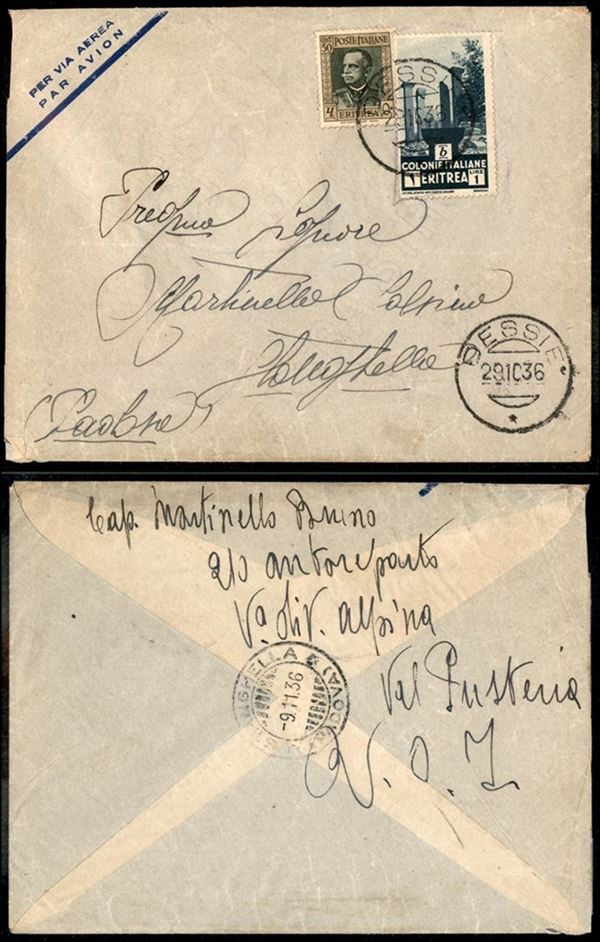 PER VIA AEREA
PAR AVION
CENT 50 POSTE ITALIANE
ERITREA
COLONIE ITALIANE
ERITREA LIRE 1
DESSIE
29.10.36
Signore
Martinello
(Padova)
DESSIE
29.10.36
*
Cap. Martinello Bruno
210 autoreparto
Va div. alpina
Val Pusteria
A. O. I.
STANGHELLA (PADOVA)
-9.11.36